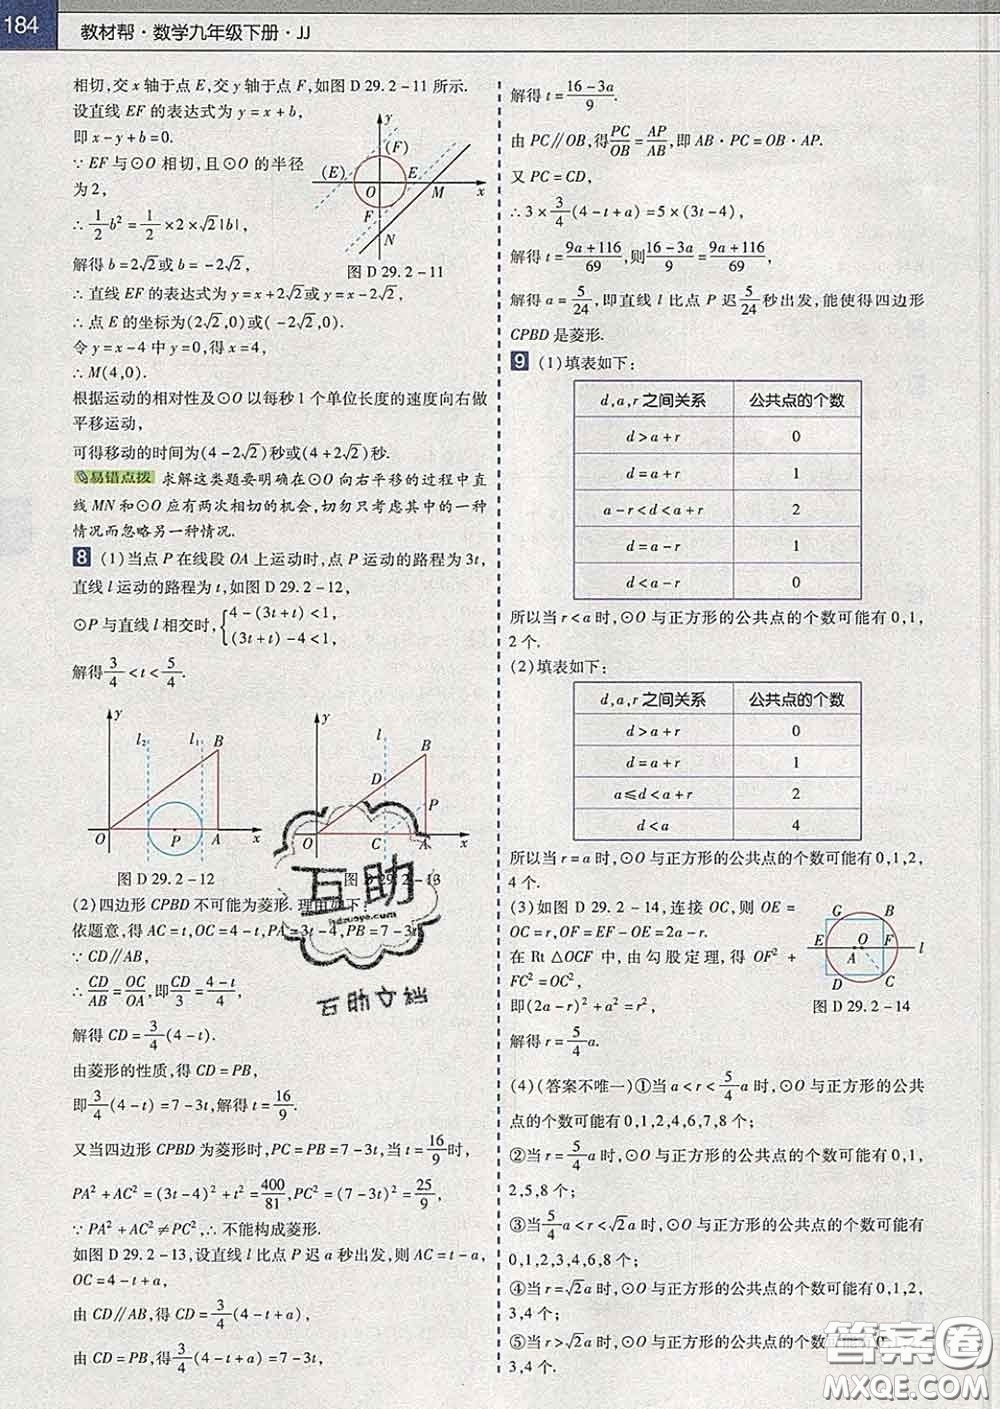 184
教材帮·数学九年级下册·JJ
相切,交 x 轴于点 E,交 y 轴于点 F,如图 D 29.2-11 所示.
设直线 EF 的表达式为 y=x+b,
即 x-y+b=0.
∵ EF 与⊙O 相切,且⊙O 的半径
为 2,
∴ 1/2 b²=1/2×2×√2|b|,
解得 b=2√2或 b=-2√2,
∴ 直线 EF 的表达式为 y=x+2√2或 y=x-2√2.
∴ 点 E 的坐标为(2√2,0)或(-2√2,0).
令 y=x-4 中 y=0,得 x=4,
∴ M(4,0).
根据运动的相对性及⊙O 以每秒 1 个单位长度的速度向右做
平移运动,
可得移动的时间为(4-2√2)秒或(4+2√2)秒.
y
(F)
(E)
E
O
M
x
F
N
图 D 29.2-11
易错点拨 求解这类题要明确在⊙O 向右平移的过程中直
线 MN 和⊙O 应有两次相切的机会,切勿只考虑其中的一种
情况而忽略另一种情况.
8 (1)当点 P 在线段 OA 上运动时,点 P 运动的路程为 3t,
直线 l 运动的路程为 t,如图 D 29.2-12,
⊙P 与直线 l 相交时,{4-(3t+t)<1,
(3t+t)-4<1,
解得 3/4<t<5/4.
y
l₂
l₁
B
O
P
A
x
图 D 29.2-12
y
l
B
D
P
O
C
A
x
图 D 29.2-13
(2)四边形 CPBD 不可能为菱形. 理由如下:
依题意,得 AC=t,OC=4-t,PA=3t-4,PB=7-3t.
∵ CD∥AB,
∴ CD/AB=OC/OA,即CD/3=(4-t)/4,
解得 CD=3/4(4-t).
由菱形的性质,得 CD=PB,
即3/4(4-t)=7-3t,解得 t=16/9.
又当四边形 CPBD 为菱形时,PC=PB=7-3t,当 t=16/9时,
PA²+AC²=(3t-4)²+t²=400/81,PC²=(7-3t)²=25/9,
∵ PA²+AC²≠PC²,∴ 不能构成菱形.
如图 D 29.2-13,设直线 l 比点 P 迟 a 秒出发,则 AC=t-a,
OC=4-t+a,
由 CD∥AB,得 CD=3/4(4-t+a),
由 CD=PB,得3/4(4-t+a)=7-3t,
解得 t=(16-3a)/9.
由 PC∥OB,得PC/OB=AP/AB,即 AB·PC=OB·AP.
又 PC=CD,
∴ 3×3/4(4-t+a)=5×(3t-4),
解得 t=(9a+116)/69,则(16-3a)/9=(9a+116)/69,
解得 a=5/24,即直线 l 比点 P 迟5/24秒出发,能使得四边形
CPBD 是菱形.
9 (1)填表如下:
d,a,r 之间关系 公共点的个数
d>a+r 0
d=a+r 1
a-r<d<a+r 2
d=a-r 1
d<a-r 0
所以当 r<a 时,⊙O 与正方形的公共点的个数可能有 0,1,
2 个.
(2)填表如下:
d,a,r 之间关系 公共点的个数
d>a+r 0
d=a+r 1
a≤d<a+r 2
d<a 4
所以当 r=a 时,⊙O 与正方形的公共点的个数可能有 0,1,2,
4 个.
(3)如图 D 29.2-14,连接 OC,则 OE=
OC=r,OF=EF-OE=2a-r.
在 Rt △OCF 中,由勾股定理,得 OF²+
FC²=OC²,
即(2a-r)²+a²=r²,
解得 r=5/4 a.
G
B
E
O
F
l
A
D
C
图 D 29.2-14
(4)(答案不唯一)①当 a<r<5/4 a 时,⊙O 与正方形的公共
点的个数可能有 0,1,2,4,6,7,8 个;
②当 r=5/4 a 时,⊙O 与正方形的公共点的个数可能有 0,1,
2,5,8 个;
③当5/4 a<r<√2 a 时,⊙O 与正方形的公共点的个数可能有
0,1,2,3,4,6,8 个;
④当 r=√2 a 时,⊙O 与正方形的公共点的个数可能有 0,1,2,
3,4 个;
⑤当 r>√2 a 时,⊙O 与正方形的公共点的个数可能有 0,1,2,
3,4 个.
互助
hdzuoye.com
互助文档
答案圈
MXQE.COM